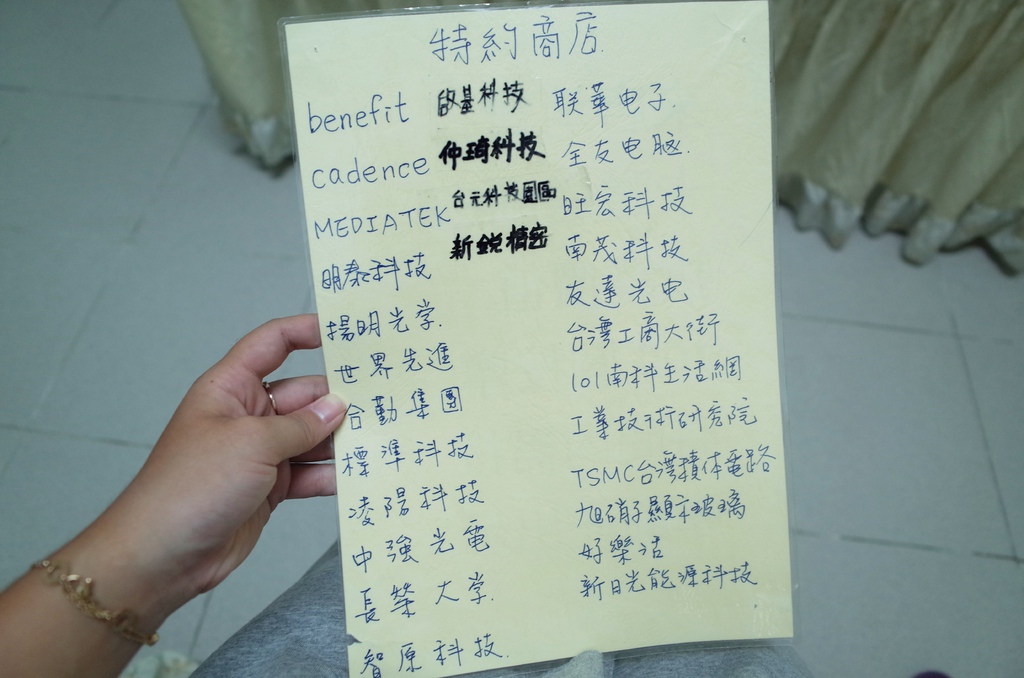 特約商店
benefit
cadence
MEDIATEK
明泰科技
揚明光学
世界先進
合勤集團
標準科技
凌陽科技
中強光電
長榮大学
智原科技
啟基科技
仲琦科技
台元科技園區
新銳精密
联華电子
全友电脑
旺宏科技
南茂科技
友達光电
台灣工商大街
101南科生活網
工業技術研究院
TSMC台灣積体電路
旭硝子顯示玻璃
好樂活
新日光能源科技